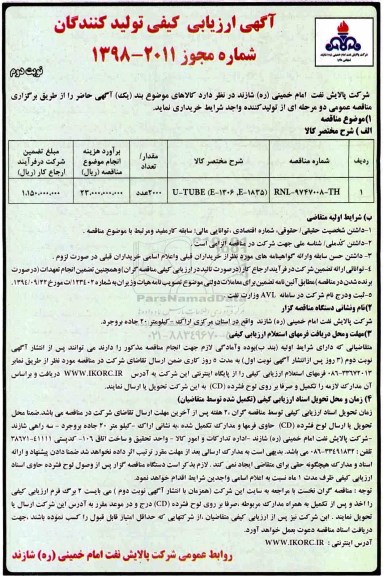 آگهی ارزیابی کیفی تولید کنندگان
شماره مجوز ۲۰۱۱-۱۳۹۸
نوبت دوم
شرکت پالایش نفت امام خمینی (ره) شازند در نظر دارد کالاهای موضوع بند (یک) آگهی حاضر را از طریق برگزاری
مناقصه عمومی دو مرحله ای از تولیدکننده واجد شرایط خریداری نماید.
۱)موضوع مناقصه
الف ) شرح مختصر کالا
ردیف شماره مناقصه شرح مختصر کالا مقدار/تعداد برآورد هزینه انجام موضوع مناقصه (ریال) مبلغ تضمین شرکت درفرآیند ارجاع کار (ریال)
۱ RNL-۹۷۴۷۰۰۸-TH U-TUBE (E-۱۳۰۶ ,E-۱۸۳۵) ۲۰۰۰عدد ۲۳.۰۰۰.۰۰۰.۰۰۰ ۱.۱۵۰.۰۰۰.۰۰۰
ب) شرایط اولیه متقاضی
۱-داشتن شخصیت حقیقی/ حقوقی، شماره اقتصادی ،توانایی مالی/ سابقه کارمفید ومرتبط با موضوع مناقصه .
۲-داشتن کدملی/ شناسه ملی جهت شرکت در مناقصه الزامی است .
۳- داشتن حسن سابقه وارائه گواهینامه های مورد نظراز خریداران قبلی واعلام اسامی خریداران قبلی در صورت لزوم .
۴-توانائی ارائه تضمین شرکت درفرآیند ارجاع کار (درصورت تائیددرارزیابی کیفی مناقصه گران)وهمچنین تضمین انجام تعهدات (درصورت
برنده شدن درمناقصه)مطابق آئین نامه تضمین برای معاملات دولتی موضوع تصویب نامه هیات وزیران به شماره
۵-ثبت ودرج نام شرکت در سامانه AVL وزارت نفت
۲)نام ونشانی دستگاه مناقصه گزار
شرکت پالایش نفت امام خمینی (ره) شازند واقع در استان مرکزی اراک -کیلومتر ۲۰ جاده بروجرد.
۳)مهلت ومحل دریافت فرمهای استعلام ارزیابی کیفی:
متقاضیانی که دارای شرایط اولیه (بند ب)بوده وآمادگی لازم جهت انجام مناقصه مذکور را دارند می توانند پس از انتشار آگهی
نوبت دوم (۳ روز پس ازانتشار آگهی نوبت اول) به مدت ۵ روز کاری ضمن ارسال تقاضای شرکت در مناقصه مورد نظر از طریق نمابر
فرمهای استعلام ارزیابی کیفی را از پایگاه اینترنتی این شرکت به آدرس WWW.IKORC.IR دریافت و براساس
آن مدارک لازمه را تکمیل و صرفا بر روی لوح فشرده (CD) به این شرکت تحویل یا ارسال نمایند.
۴) زمان و محل تحویل اسناد ارزیابی کیفی (تکمیل شده توسط متقاضیان)
زمان تحویل اسناد ارزیابی کیفی توسط مناقصه گران ۲۰ هفته پس از آخرین مهلت ارسال تقاضای شرکت در مناقصه می باشد.ضمنا محل
تحویل یا ارسال لوح فشرده (CD) حاوی فرمها و مدارک تکمیل شده ،به نشانی اراک -کیلو متر ۲۰ جاده بروجرد - سه راهی شازند
-شرکت پالایش نفت امام خمینی (ره) شازند -اداره تدارکات و امور کالا - واحد تحقیق و ساخت اتاق ۱۰۶- کدپستی ۴۱۱۱۱-۳۸۶۷۱
تلفن می باشد. بدیهی است به مدارک ارسالی بعد از مهلت مقرر ترتیب اثر داده نخواهد شد.ضمنا دادن پیشنهاد و ارائه
اسناد و مدارک هیچگونه حقی برای متقاضی ایجاد نمی کند. لازم بذکر است دستگاه مناقصه گزار پس از وصول لوح فشرده حاوی اسناد
ارزیابی کیفی ظرف مدت ۱ ماه نسبت به اعلام اسامی واجدین شرایط اقدام خواهد نمود.
توجه : مناقصه گران نخست با مراجعه به سایت این شرکت (همزمان با انتشار آگهی نوبت دوم ) می بایست ۲ برگ فرم ارزیابی کیفی
را اخذ و پس از تکمیل به همراه مدارک مربوطه ،صرفا بر روی لوح فشرده (CD) درج و در موعد مقرر به آدرس این شرکت ارسال یا
تحویل نمایند . این شرکت نیز پس از ارزیابی کیفی متقاضیان ،از شرکتهایی که حداقل امتیاز قابل قبول را کسب نموده باشند ،جهت
دریافت اسناد مناقصه دعوت بعمل خواهد آورد.
آدرس اینترنتی : WWW.IKORC.IR
روابط عمومی شرکت پالایش نفت امام خمینی (ره) شازند